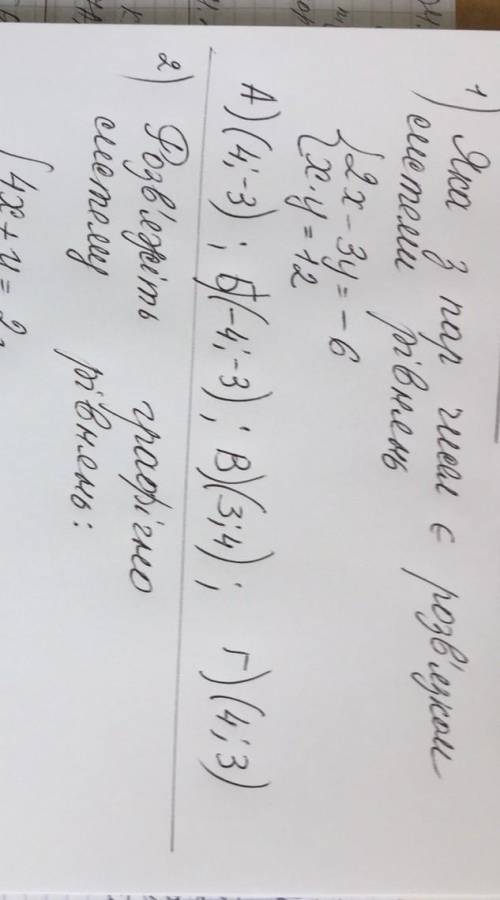 1) Яка з пар чисел є розв'язком
системи рівнянь
{2x - 3y = -6
x · y = 12
А) (4; -3); Б) (-4; -3); В) (3; 4); Г) (4; 3)
2) Розв'яжіть графічно
систему рівнянь:
{4x + y = 2